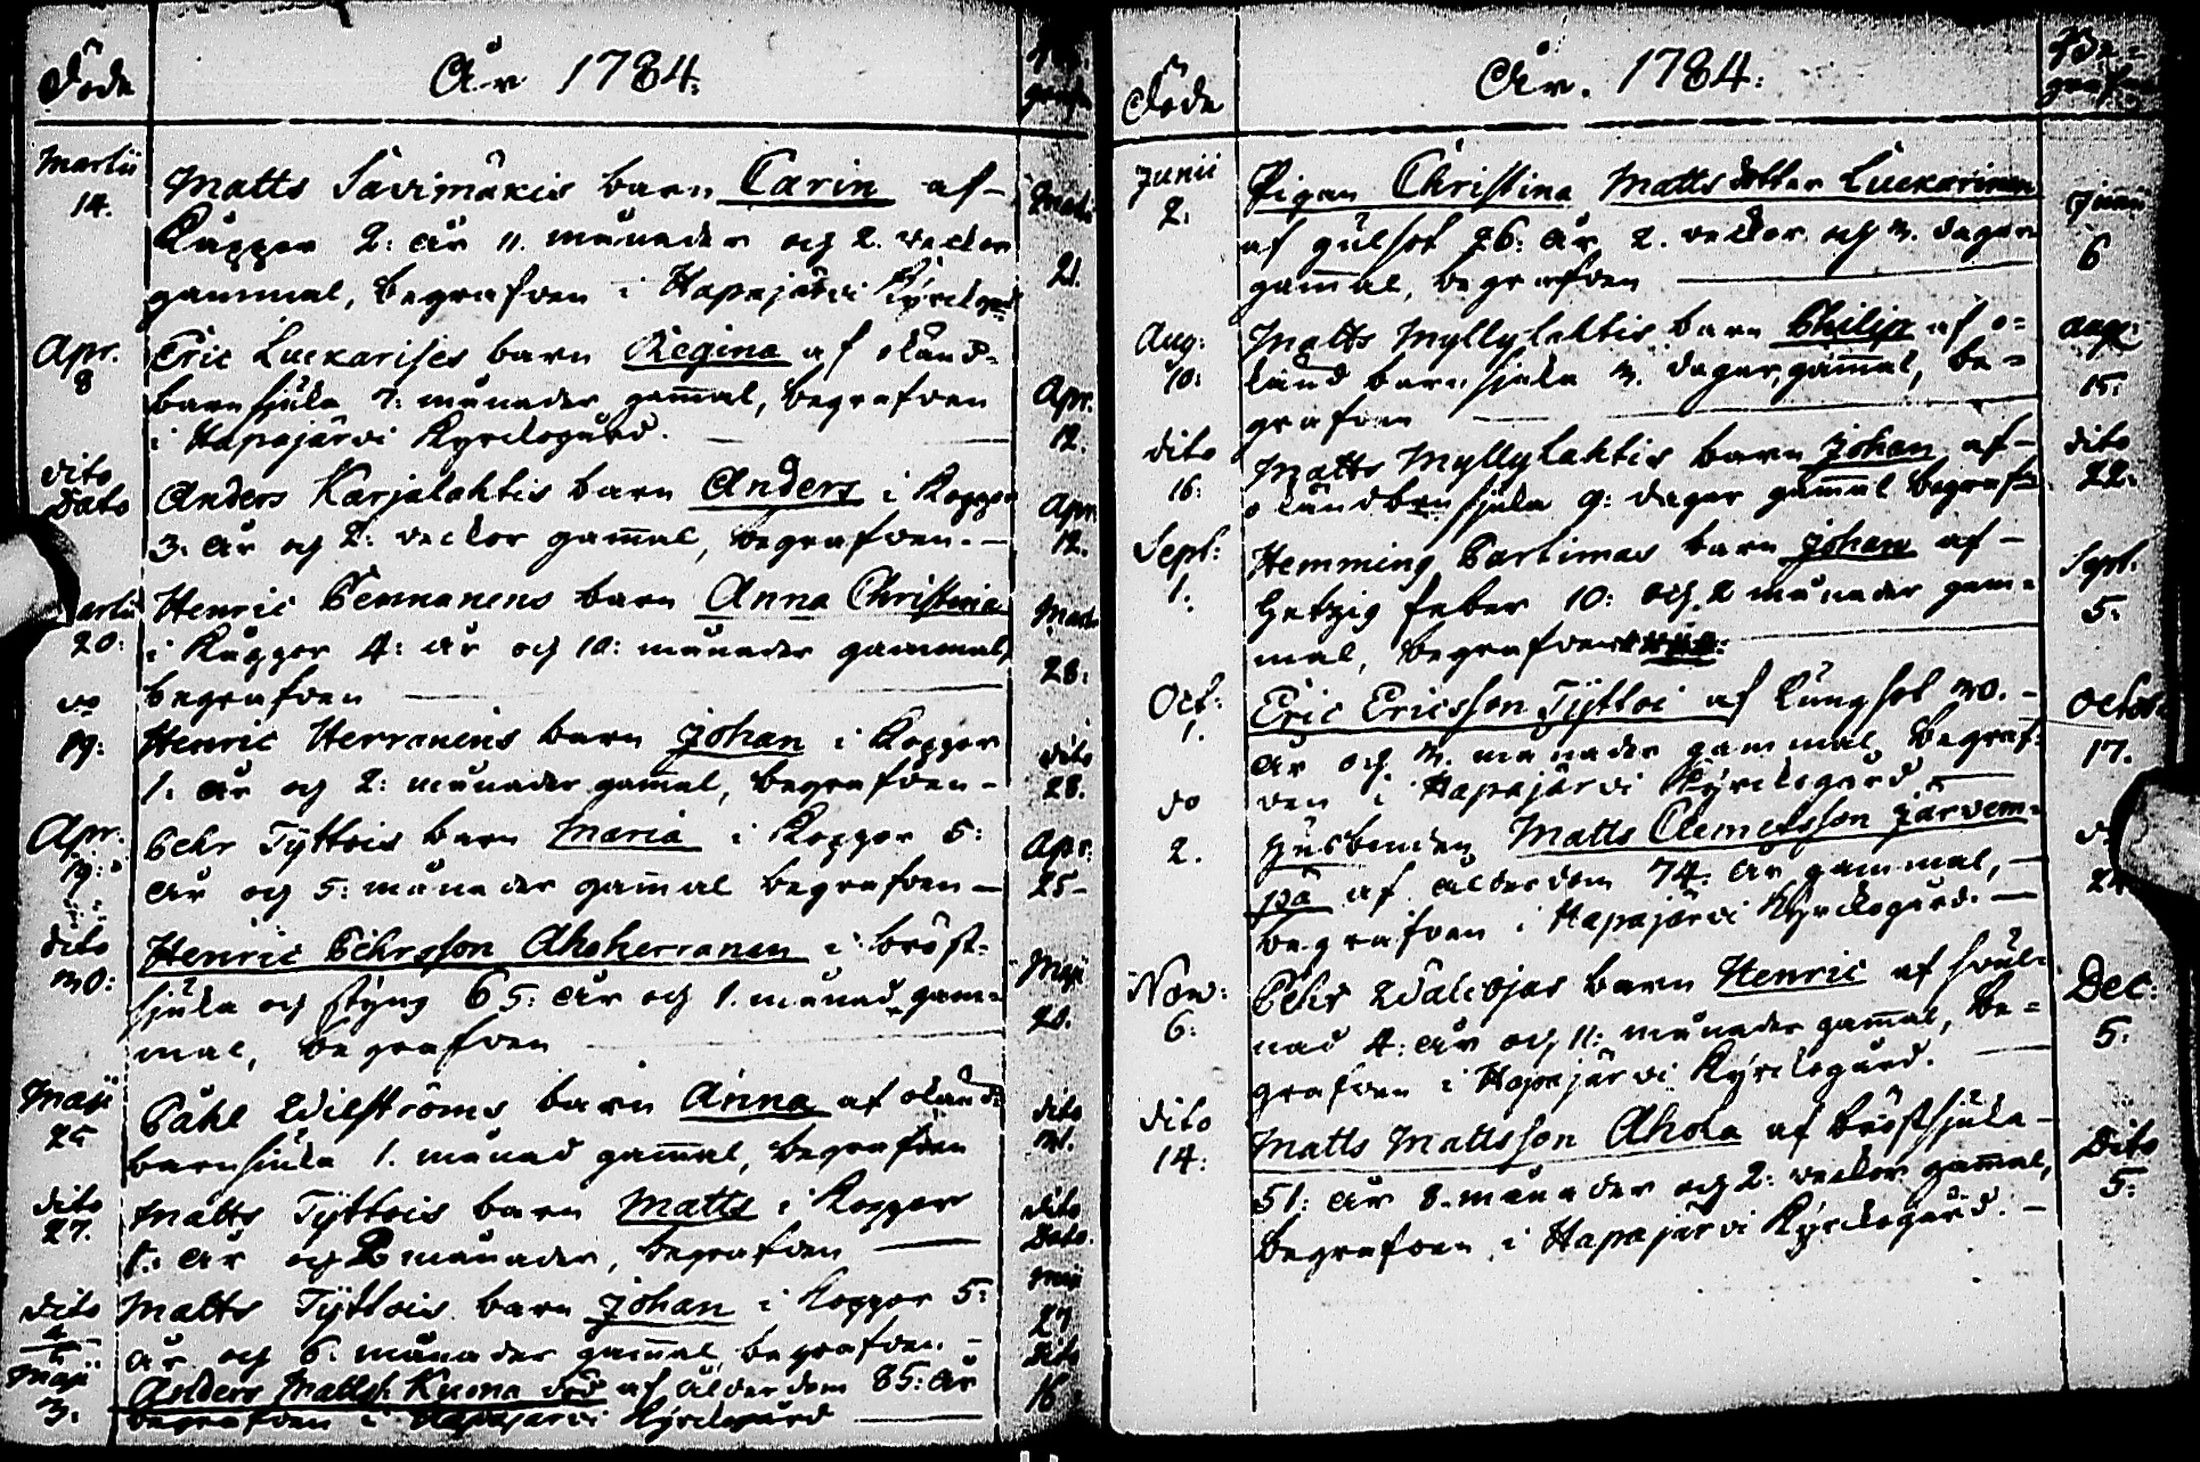 Döde
År 1784.
Be-
grafne
Martii
14.
Matts Savimäkis barn Carin af
Kåppor 2: år 11. månader och 2. veckor
gammal, begrafven i Kapajärvi Kyrckog:
21.
Apr.
8
Eric Luckarises barn Regina af okänd
barnsjuka 7: månader gam̄al, begrafven
i Hapajärvi Kyrckogård.
Apr.
12.
dito
Dato
Anders Karjalahtis barn Anders i Koppor
3. år och 2: veckor gam̄al, begrafven.
Apr.
12.
Martii
20:
Henric Pennanens barn Anna Christina
i Kåppor 4: år och 10: månader gammal,
begrafven
Mart.
28:
do
19:
Henric Herranens barn Johan i Koppor
1. år och 2: månader gam̄al, begrafven
dito
28.
Apr.
19:
Pehr Tyttois barn Maria i Koppor 5:
år och 5: månader gam̄al begrafven
Apr:
25
dito
30:
Henric Pehrsson Ahoherranen i bröst-
sjuka och styng 65: år och 1. månad gam-
mal, begrafven
Maji
20.
Maji
25
Påhl Wilströms barn Anna af okänd
barnsjuka 1. månad gam̄al, begrafven
dito
31.
dito
27.
Matts Tyttois barn Matts i Koppor
1. år och 2 månader, begrafven
dito
Dato.
dito
Matts Tyttois barn Johan i Koppor 5:
år och 6. månader gam̄al begrafven
27
Maji
3.
Anders Matts: Kuona död af ålderdom 85: år
begrafven i Hapajärvi Kyrckogård
dito
16
Döde
År. 1784.
Be-
grafne
Junii
2.
Pigan Christina Mattsdotter Luckarinen
af gulsot 26: år 2. veckor och 3. dagar
gam̄al, begrafven
Junii
6
Aug:
10:
Matts Myllylahtis barn Philip af o-
känd barnsjuka 3. dagar, gam̄al, be-
grafven
Aug:
15.
dito
16:
Matts Myllylahtis barn Johan af
okänd barnsjuka 9: dagar gam̄al begrafv:
dito
22.
Sept:
1.
Hemming Partimas barn Johan af
hetzig feber 10: och 2 månader gam-
mal, begrafven
Sept.
5.
Oct:
1.
Eric Ericsson Tyttoi af Lungsot 30.
år och 3. månader gammal, begraf-
ven i Hapajärvi Kyrckogård
Octob:
17.
do
2.
Husbonden Matts Clemetsson Järvem-
pä af ålderdom 74: år gammal,
begrafven i Hapajärvi Kyrckogård.
Nov:
6:
Pehr Walcojas barn Henric af svul-
nad 4: år och 11: månader gam̄al, be-
grafven i Hapajärvi Kyrckogård.
Dec:
5.
dito
14:
Matts Mattsson Ahola af bröstsjuka
51: år 8. månader och 2: veckor gam̄al,
begrafven i Hapajärvi Kyrckogård.
Dito
5: